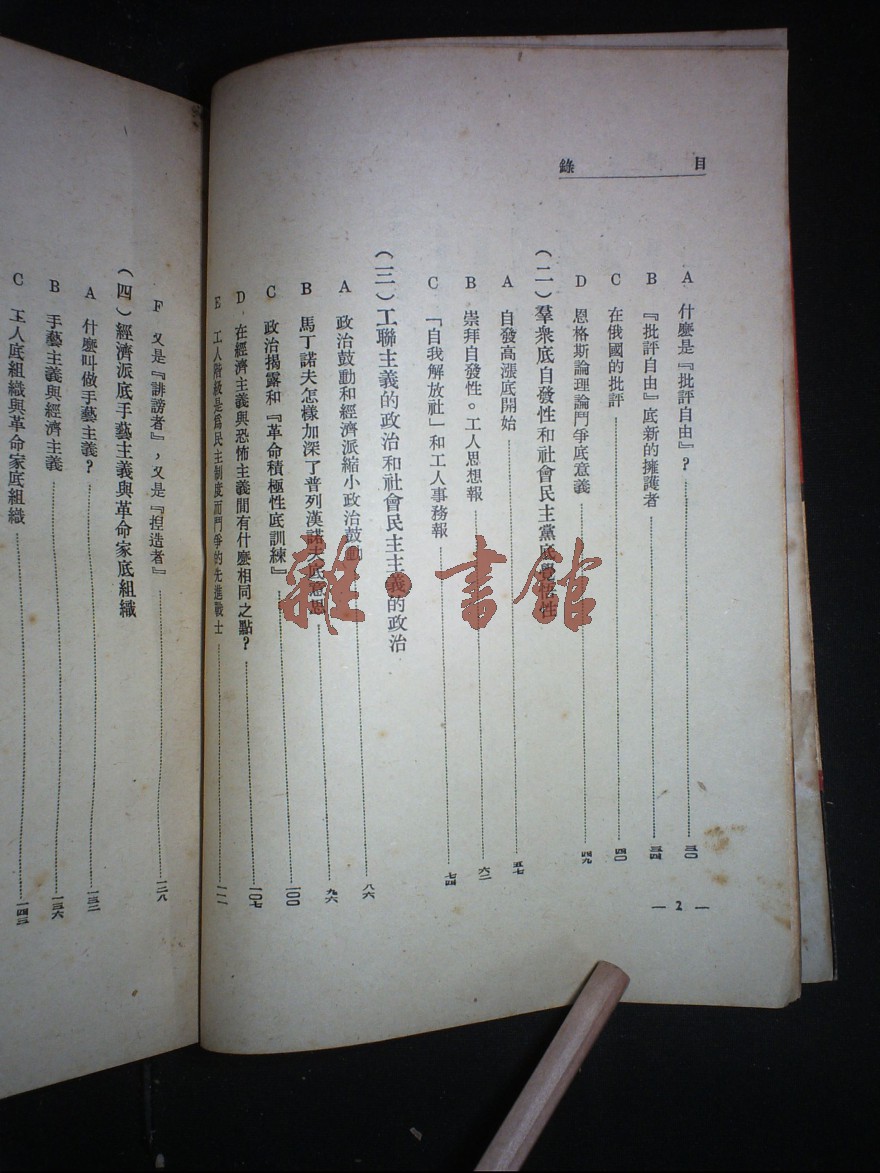 目錄
A 什麼是『批評自由』？ 三〇
B 『批評自由』底新的擁護者 三四
C 在俄國的批評 四〇
D 恩格斯論理論鬥爭底意義 四九
（二）羣衆底自發性和社會民主黨底覺悟性
A 自發高漲底開始 五七
B 崇拜自發性。工人思想報 六二
C 「自我解放社」和工人事務報 七四
（三）工聯主義的政治和社會民主主義的政治
A 政治鼓動和經濟派縮小政治鼓動 八六
B 馬丁諾夫怎樣加深了普列漢諾夫底意思 九六
C 政治揭露和『革命積極性底訓練』 一〇〇
D 在經濟主義與恐怖主義間有什麼相同之點？ 一〇七
E 工人階級是爲民主制度而鬥爭的先進戰士 一一一
— 2 —
F 又是『誹謗者』，又是『捏造者』 一二八
（四）經濟派底手藝主義與革命家底組織
A 什麼叫做手藝主義？ 一三二
B 手藝主義與經濟主義 一三六
C 工人底組織與革命家底組織 一四三
雜·書館